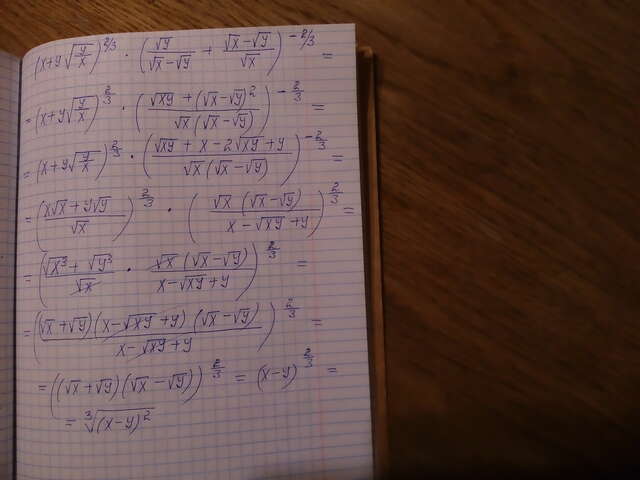 (x+y√(y/x))^(2/3) · (√y/(√x-√y) + (√x-√y)/√x)^(-2/3) =
= (x+y√(y/x))^(2/3) · ((√xy + (√x-√y)^2)/(√x(√x-√y)))^(-2/3) =
= (x+y√(y/x))^(2/3) · ((√xy + x - 2√xy + y)/(√x(√x-√y)))^(-2/3) =
= ((x√x + y√y)/√x)^(2/3) · (√x(√x-√y)/(x-√xy+y))^(2/3) =
= ((√x^3 + √y^3)/√x · √x(√x-√y)/(x-√xy+y))^(2/3) =
= ((√x+√y)(x-√xy+y)(√x-√y)/(x-√xy+y))^(2/3) =
= ((√x+√y)(√x-√y))^(2/3) = (x-y)^(2/3) =
= ∛((x-y)^2)